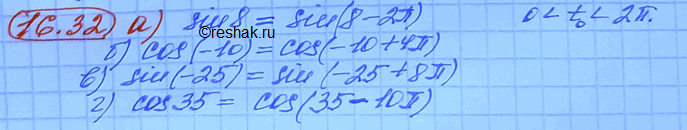 16.32) а) sin 8 = sin(8-2π) 0 < t₀ < 2π.
б) cos(-10) = cos(-10+4π)
в) sin(-25) = sin (-25+8π)
г) cos 35 = cos(35-10π)